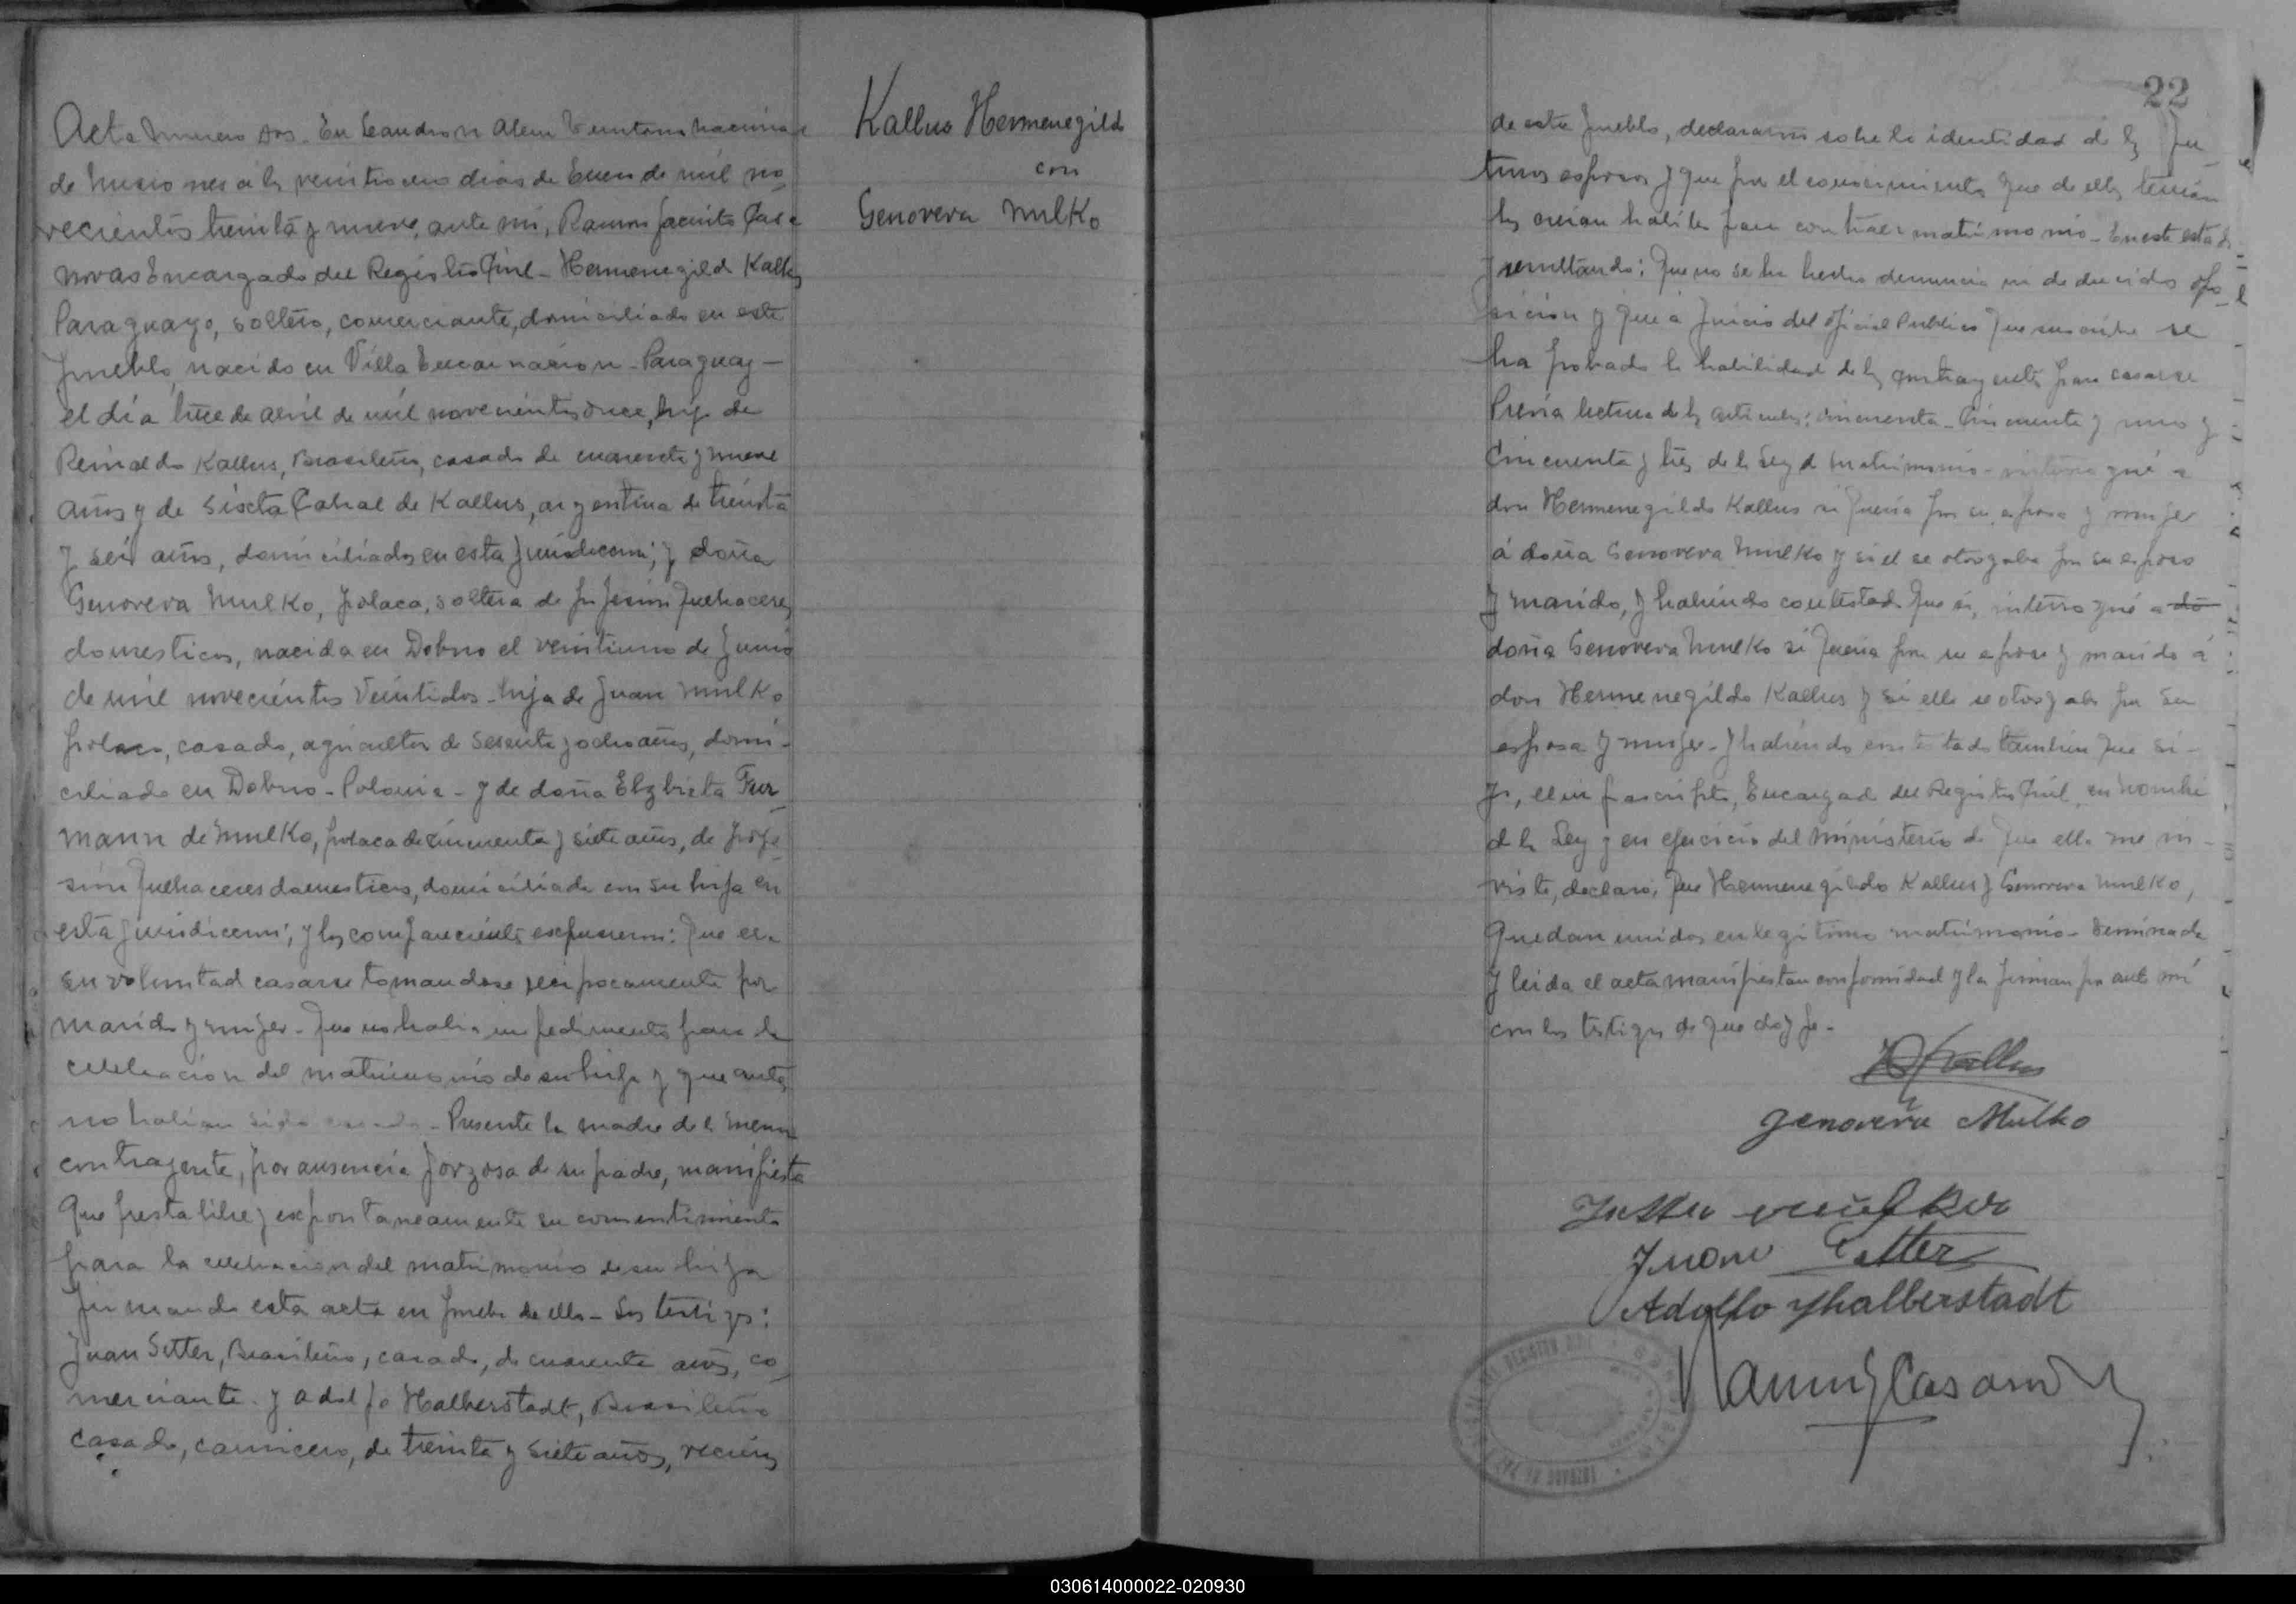 Acta numero dos. En Leandro N Alem Territorio Nacional
de Misiones a los veintiocho dias de Enero de mil no-
vecientos treinta y nueve, ante mi, Ramon Jacinto Casa
novas Encargado del Registro Civil - Hermenegildo Kallus
Paraguayo, soltero, comerciante, domiciliado en este
pueblo, nacido en Villa Encarnacion - Paraguay -
el dia trece de abril de mil novecientos once, hijo de
Reinaldo Kallus, Brasileño, casado de cuarenta y nueve
años y de Sixta Cabral de Kallus, argentina de treinta
y seis años, domiciliados en esta jurisdiccion; y doña
Genoveva Mulko, polaca, soltera de profesion quehaceres
domesticos, nacida en Dobno el veintiuno de Junio
de mil novecientos veintidos - hija de Juan Mulko
polaco, casado, agricultor de sesenta y ocho años, domi-
ciliado en Dobno - Polonia - y de doña Elzbieta Fur-
mann de Mulko, polaca de cincuenta y siete años, de profe-
sion quehaceres domesticos, domiciliada con su hija en
esta jurisdiccion; y los comparecientes expusieron: Que era
su voluntad casarse tomandose reciprocamente por
marido y mujer - Que no habia impedimento para la
celebracion del matrimonio de su hija y que antes
no habian sido casados - Presente la madre de la menor
contrayente, por ausencia forzosa de su padre, manifiesta
Que presta libre y expontaneamente su consentimiento
para la celebracion del matrimonio de su hija
firmando esta acta en prueba de ello - Los testigos:
Juan Setter, Brasileño, casado, de cuarenta años, co-
merciante y Adolfo Halberstadt, Brasileño
casado, carnicero, de treinta y siete años, vecinos
Kallus Hermenegildo
con
Genoveva Mulko
22
de este pueblo, declararon sobre la identidad de los fu-
turos esposos y que por el conocimiento que de ellos tenian
los creian habiles para contraer matrimonio - En este estado
y resultando: Que no se ha hecho denuncia ni deducido opo-
sicion y que a juicio del oficial Publico que suscribe se
ha probado la habilidad de los contrayentes para casarse
Previa lectura de los articulos: cincuenta - Cincuenta y uno y
Cincuenta y tres de la Ley de Matrimonio - interrogué a
don Hermenegildo Kallus si queria por su esposa y mujer
á doña Genoveva Mulko y si el se otorgaba por su esposo
y marido, y habiendo contestado Que si, interrogué a do
doña Genoveva Mulko si queria por su esposo y marido á
don Hermenegildo Kallus y si ella se otorgaba por su
esposa y mujer - y habiendo contestado tambien que si -
yo, el infrascripto, Encargado del Registro Civil, en nombre
de la Ley y en ejercicio del ministerio de que ella me in-
viste, declaro; Que Hermenegildo Kallus y Genoveva Mulko,
Quedan unidos en legitimo matrimonio - Terminada
y leida el acta manifiestan conformidad y la firman por ante mi
con los testigos de que doy fe -
Kallus
Genoveva Mulko
Juan Setter
Adolfo Halberstadt
Ramon J Casanovas
030614000022-020930